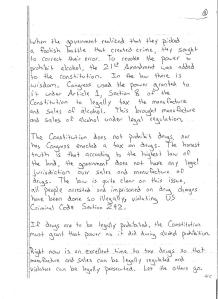 When the government realized that they picked
a foolish battle that created crime, they sought
to correct their error. To revoke the power to
prohibit alcohol, the 21st Amendment was added
to the constitution. In the law there is
wisdom. Congress used the power granted to
it under Article 1, Section 8 of the
Constitution to legally tax the manufacture
and sales of alcohol. This brought manufacture
and sales of alcohol under legal regulation.
The Constitution does not prohibit drugs, nor
has Congress enacted a tax on drugs. The honest
truth is that according to the highest law of
the land, the government does not have any legal
jurisdiction over sales and manufacture of
drugs. The law is quite clear on this issue,
all people arrested and imprisoned on drug charges
have been done so illegally, violating US
Criminal Code Section 242.
If drugs are to be legally prohibited, the Constitution
must grant that power as it did during alcohol prohibition.
Right now is an excellent time to tax drugs so that
manufacture and sales can be legally regulated and
violators can be legally prosecuted. Let the others go.